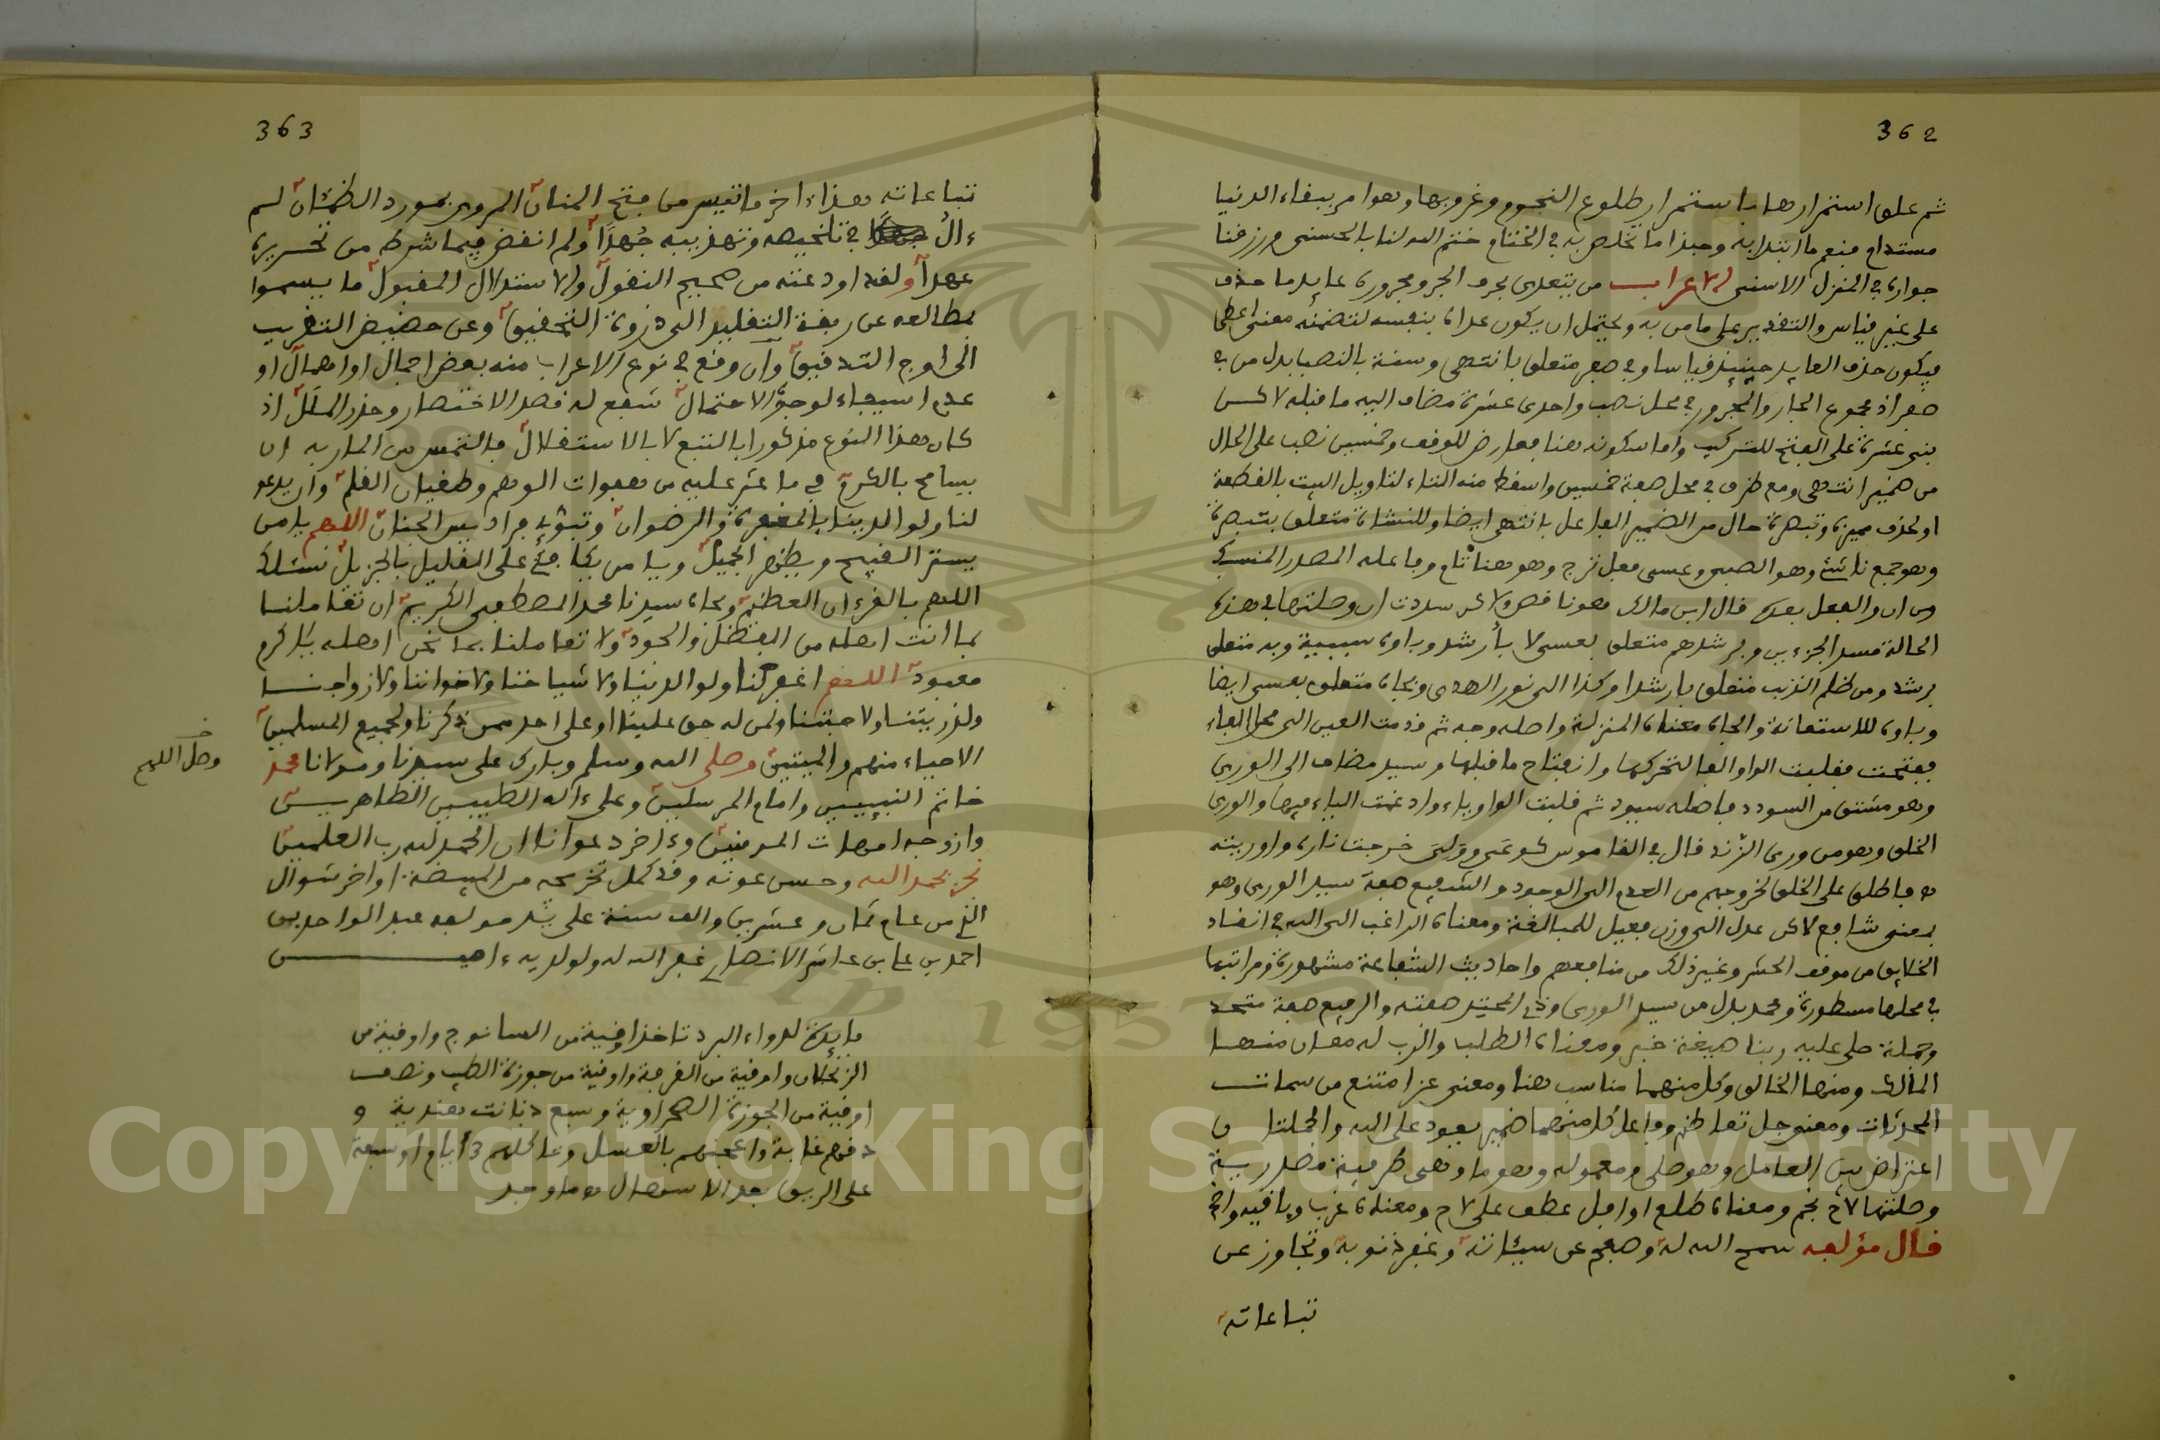 362
ثم علق استمرارها باستمرار طلوع النجوم وغروبها وهو امر ببقاء الدنيا
مستدام فنعم ما ابتدا به وحبذا ما تخلص به في الختام ختم الله لنا بالحسنى ورزقنا
جواره في المنزل الاسنى الاعراب من يتعدى بحرف الجر ومجروره عايد ما حذف
على غير قياس والتقدير على ما من به ويحتمل ان يكون عداه بنفسه لتضمنه معنى اعطى
فيكون حذف العايد حينيذ قياسا وفي صفر متعلق بانتهى وسنة بالنصب بدل من في
صفر اذ مجموع الجار والمجرور في محل نصب واحدى عشرة مضاف اليه ما قبله لاكن
بنى عشرة على الفتح للتركيب واما سكونه هنا فعارض للوقف وخمسين نصب على الحال
من ضمير انتهى ومع ظرف في محل صفة خمسين واسقط منه التاء لتاويل البيت بالقطعة
او لحذف مميزه وتبصرة حال من الضمير الفاعل بانتهى ايضا وللنشاة متعلق بتبصرة
وهو جمع ناشئ وهو الصبي وعسى فعل ترج وهو هنا تام وفاعله المصدر المنسبك
من ان والفعل بعده قال ابن مالك معونا قصر ولاكن سدت ان وصلتها في هذه
الحالة مسد الجزءين وبرشدهم متعلق بعسى لا بأرشد وباوه سببية وبه متعلق
برشد ومن ظلم الذنب متعلق بارشدا وكذا الى نور الهدى وبجاه متعلق بعسى ايضا
وباوه للاستعانة والجاه معناه المنزلة واصله وجه ثم قدمت العين الى محل الفاء
ففتحت فقلبت الواو الفا لتحركها وانفتاح ما قبلها وسيد مضاف الى الورى
وهو مشتق من السودد فاصله سيود ثم قلبت الواو ياء وادغمت الياء فيها والورى
الخلق وهو من ورى الزند قال في القاموس كوعى وولى خرجت ناره واوريته
ه فاطلق على الخلق لخروجهم من العدم الى الوجود والشفيع صفة سيد الورى وهو
بمعنى شافع لاكن عدل الى وزن فعيل للمبالغة ومعناه الراغب الى الله في انقاذ
الخلايق من موقف الحشر وغير ذلك من منافعهم واحاديث الشفاعة مشهورة ومراتبها
في محلها مسطورة ومحمد بدل من سيد الورى وذي المحتد صفته والرفيع صفة محتد
وجملة صلى عليه ربنا صيغة خبر ومعناه الطلب والرب له معان منها
المالك ومنها الخالق وكل منهما مناسب هنا ومعنى عز امتنع من سمات
المحدثات ومعنى جل تعاظم وفاعل كل منهما ضمير يعود على الله والجملتان
اعتراض بين العامل وهو صلى ومعموله وهو ما وهى ظرفية مصدرية
وصلتها لاح نجم ومعناه طلع او افل عطف على لاح ومعناه غرب وباقيه واضح
قال مؤلفه سمح الله له وصفح عن سيئاته وغفر ذنوبه وتجاوز عن
تباعاته
363
تباعاته هذا ءاخر ما تيسر من فتح المنان المروي بمورد الظمئان لم
ءال في تلخيصه وتهذيبه جُهدًا ولم انقض فيما شرط من تحريره
عهدا ولقد اودعته من صحيح النقول والاستدلال المقبول ما يسموا
بمطالعه عن ربقة التقليد الى ذروة التحقيق وعن حضيض التقريب
الى اوج التدقيق وان وقع في نوع الاعراب منه بعض اجمال او اهمال او
عدم استيفاء لوجوه الاحتمال شفع له قصد الاختصار وحذر الملل اذ
كان هذا النوع مذكورا بالتبع لا بالاستقلال فالتمس من المار به ان
يسامح بالكرم في ما عثر عليه من هفوات الوهم وطغيان القلم وان يدعو
لنا ولوالدينا بالمغفرة والرضوان وتبوئ فراديس الجنان اللهم يا من
يستر القبيح ويظهر الجميل ويا من يكافئ على القليل بالجزيل نسئلك
اللهم بالقرءان العظيم وبجاه سيدنا محمد المصطفى الكريم ان تعاملنا
بما انت اهله من الفضل والجود ولا تعاملنا بما نحن اهله يا اكرم
معبود اللهم اغفر لنا ولوالدينا ولاشياخنا ولاخواننا ولازواجنا
ولذريتنا ولاحبتنا ولمن له حق علينا او على احد ممن ذكرنا ولجميع المسلمين
الاحياء منهم والميتين وصلى الله وسلم وبارك على سيدنا ومولانا محمد
وصل اللهم
خاتم النبيين وامام المرسلين وعلى ءاله الطيبين الطاهرين
وازوجه امهات المومنين وءاخر دعوانا ان الحمد لله رب العلمين
نجز بحمد الله وحسن عونه وقد كمل تخريجه من المبيضة اواخر شوال
من عام ثمان وعشرين والف سنة على يد مولفه عبد الواحد بن
احمد بن علي بن عاشر الانصاري غفر الله له ولولديه ءامين
فايدة لدواء البرد تاخذ اوقية من السانوج واوقية من
الزنجلان واوقية من القرفة واوقية من جوزة الطيب ونصف
اوقية من الجوزة الصحراوية وسبع هندية و
دقهم غاية واعجنهم بالعسل 3 أيام او سبعة
على الريق بعد
Copyright © King Saud University
1957